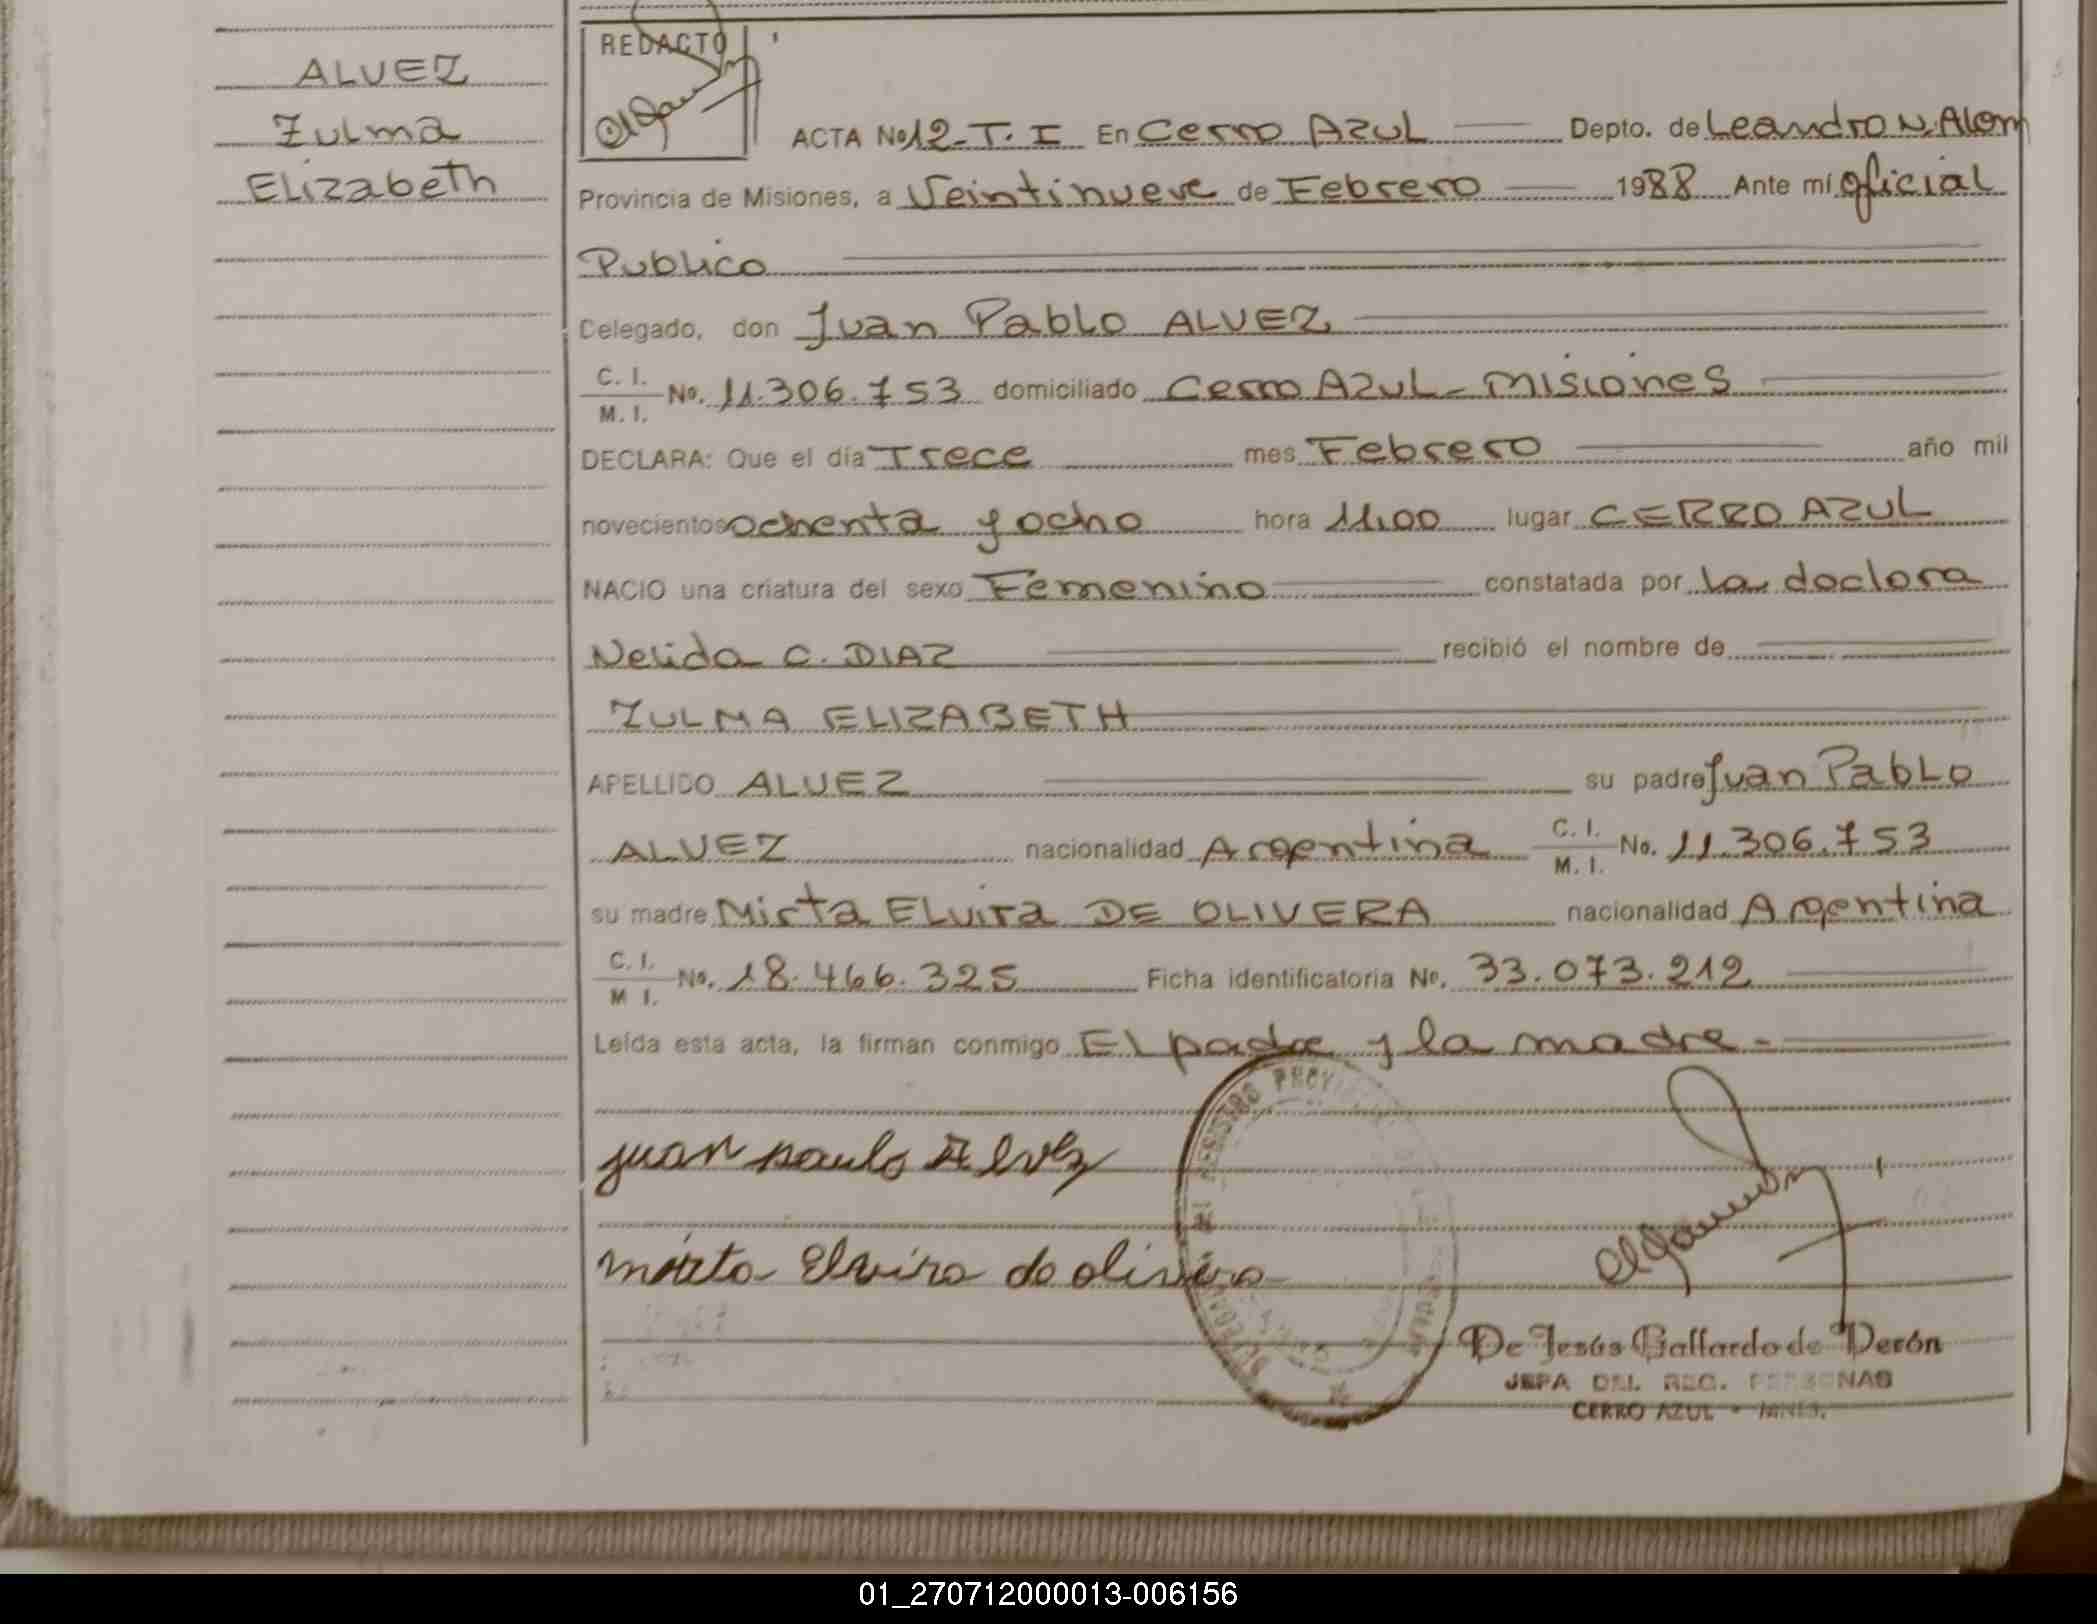 ALVEZ
Zulma
Elizabeth
REDACTO
ACTA No 12-T. I En Cerro AZUL Depto. de Leandro N. Alem
Provincia de Misiones, a Veintinueve de Febrero 1988 Ante mi oficial
Publico
Celegado, don Juan Pablo ALVEZ
C. I.
M. I.
No. 11.306.753 domiciliado Cerro AZUL - Misiones
DECLARA: Que el día Trece mes Febrero año mil
novecientos ochenta y ocho hora 11,00 lugar CERRO AZUL
NACIO una criatura del sexo Femenino constatada por la doctora
Nelida C. DIAZ recibió el nombre de
ZULMA ELIZABETH
APELLIDO ALVEZ su padre Juan Pablo
ALVEZ nacionalidad Argentina C. I. M. I. No. 11.306.753
su madre Mirta Elvira DE OLIVERA nacionalidad Argentina
C. I.
M I.
No. 18.466.325 Ficha identificatoria No. 33.073.212
Leída esta acta, la firman conmigo El padre y la madre.-
juan paulo Alvez
mirta Elvira de olivera
De Jesús Gallardo de Perón
JEFA DEL REG. PERSONAS
CERRO AZUL - MNES.
01_270712000013-006156